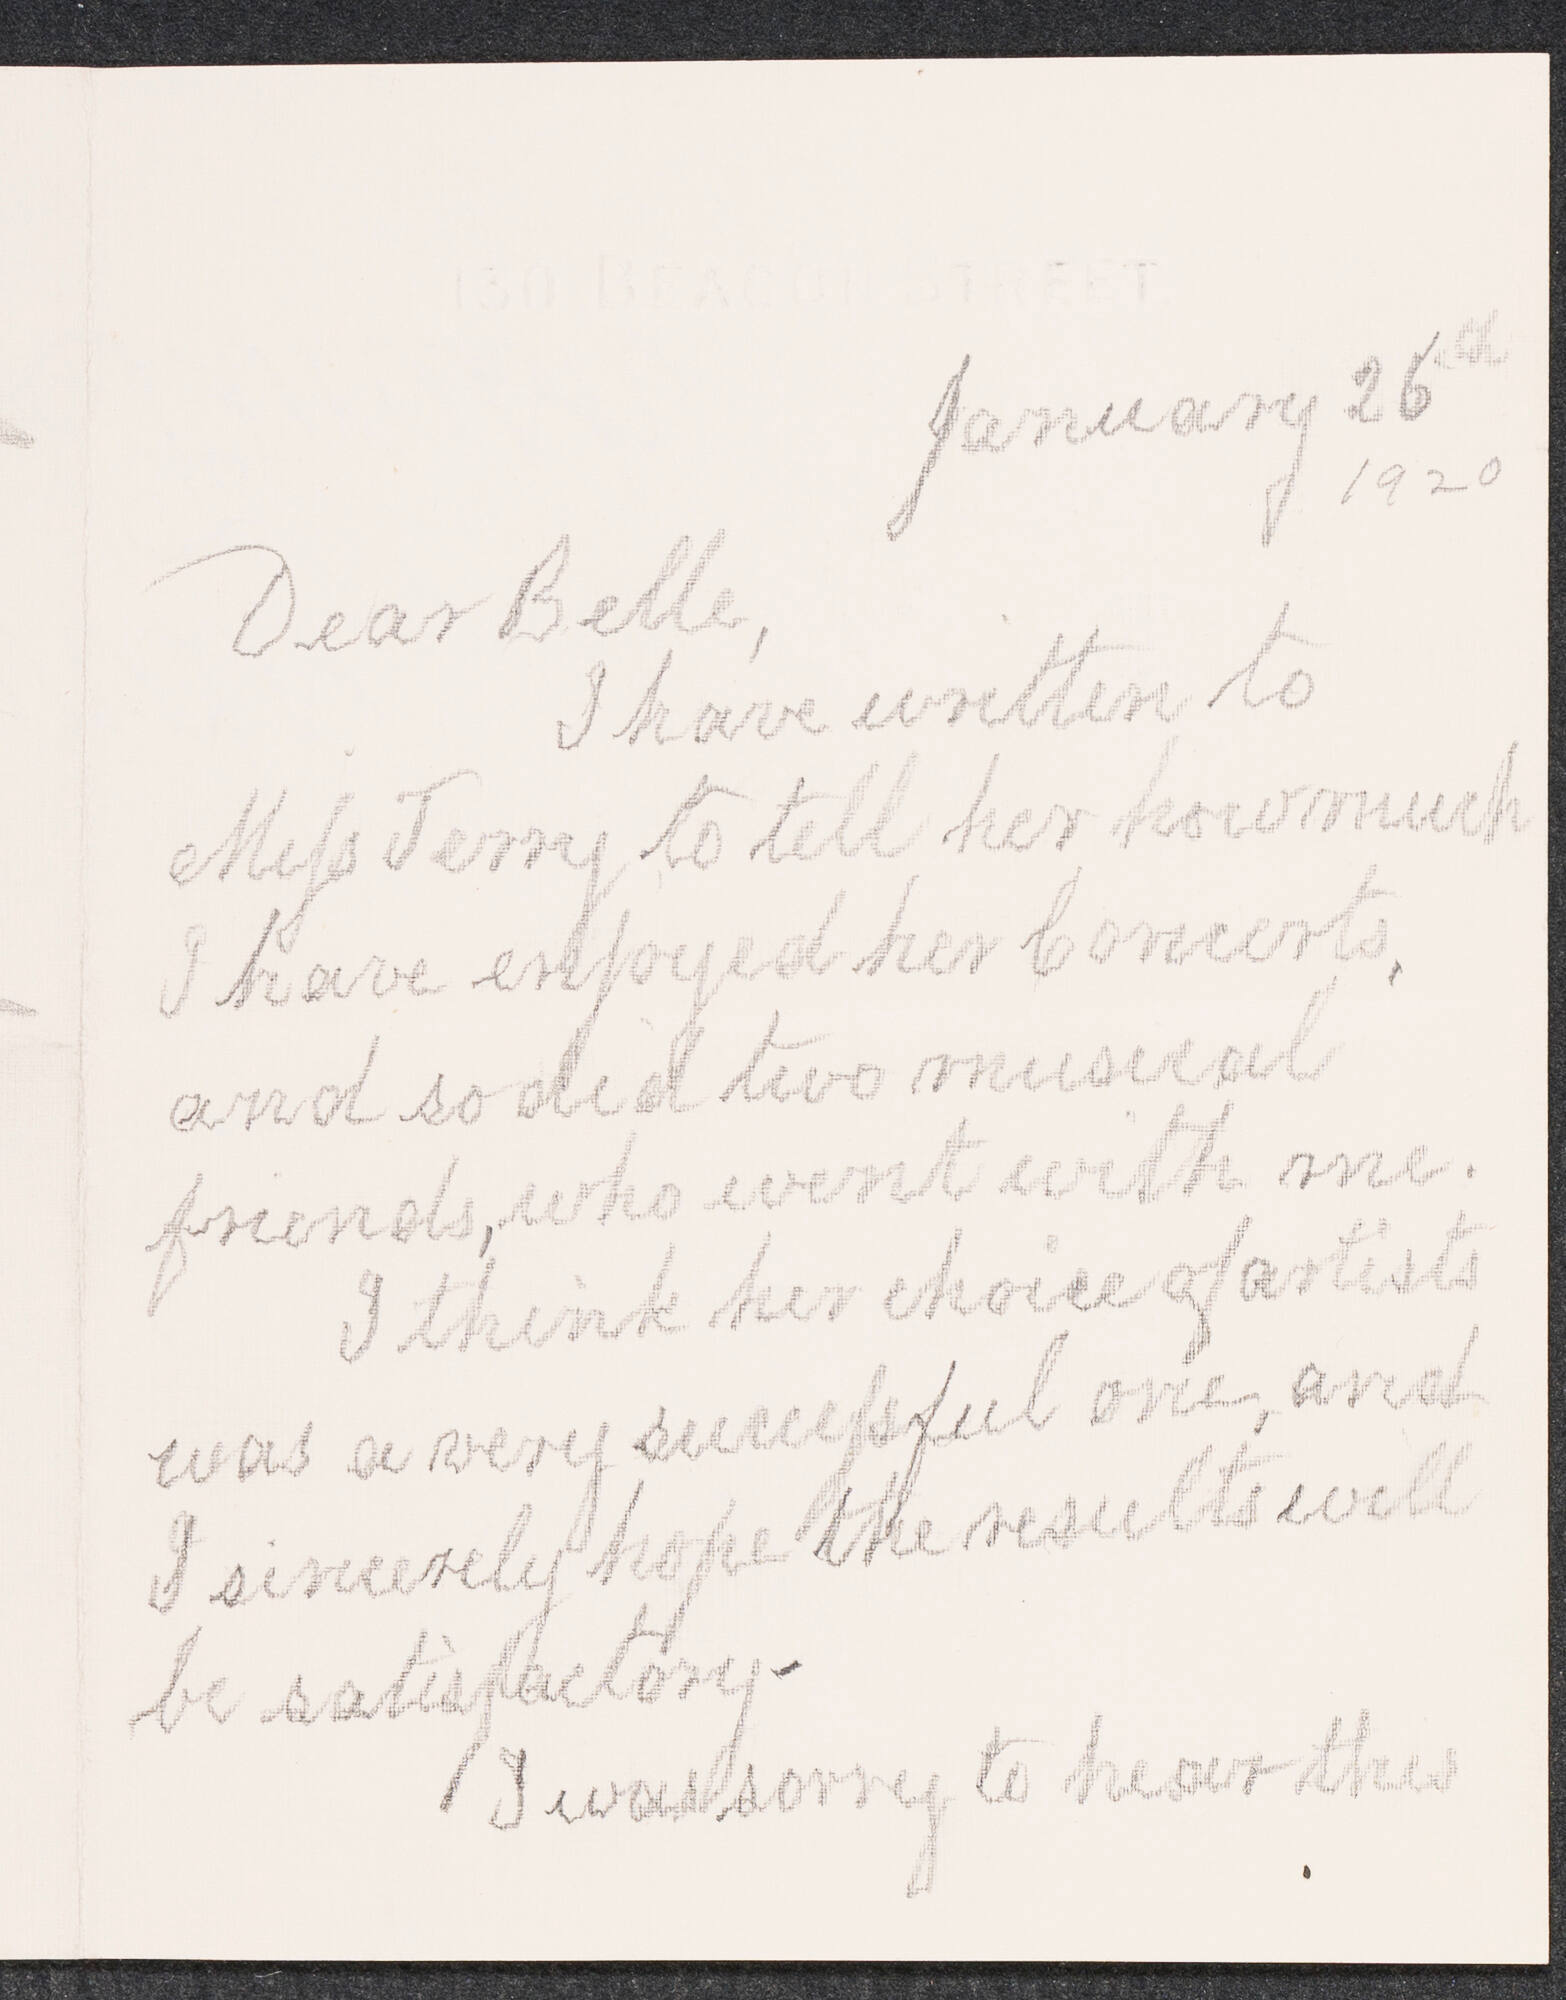 130 BEACON STREET.
January 26th
1920
Dear Belle,
I have written to
Miss Terry, to tell her how much
I have enjoyed her Concerts,
and so did two musical
friends, who went with me.
I think her choice of artists
was a very successful one, and
I sincerely hope the results will
be satisfactory-
I was sorry to hear thro